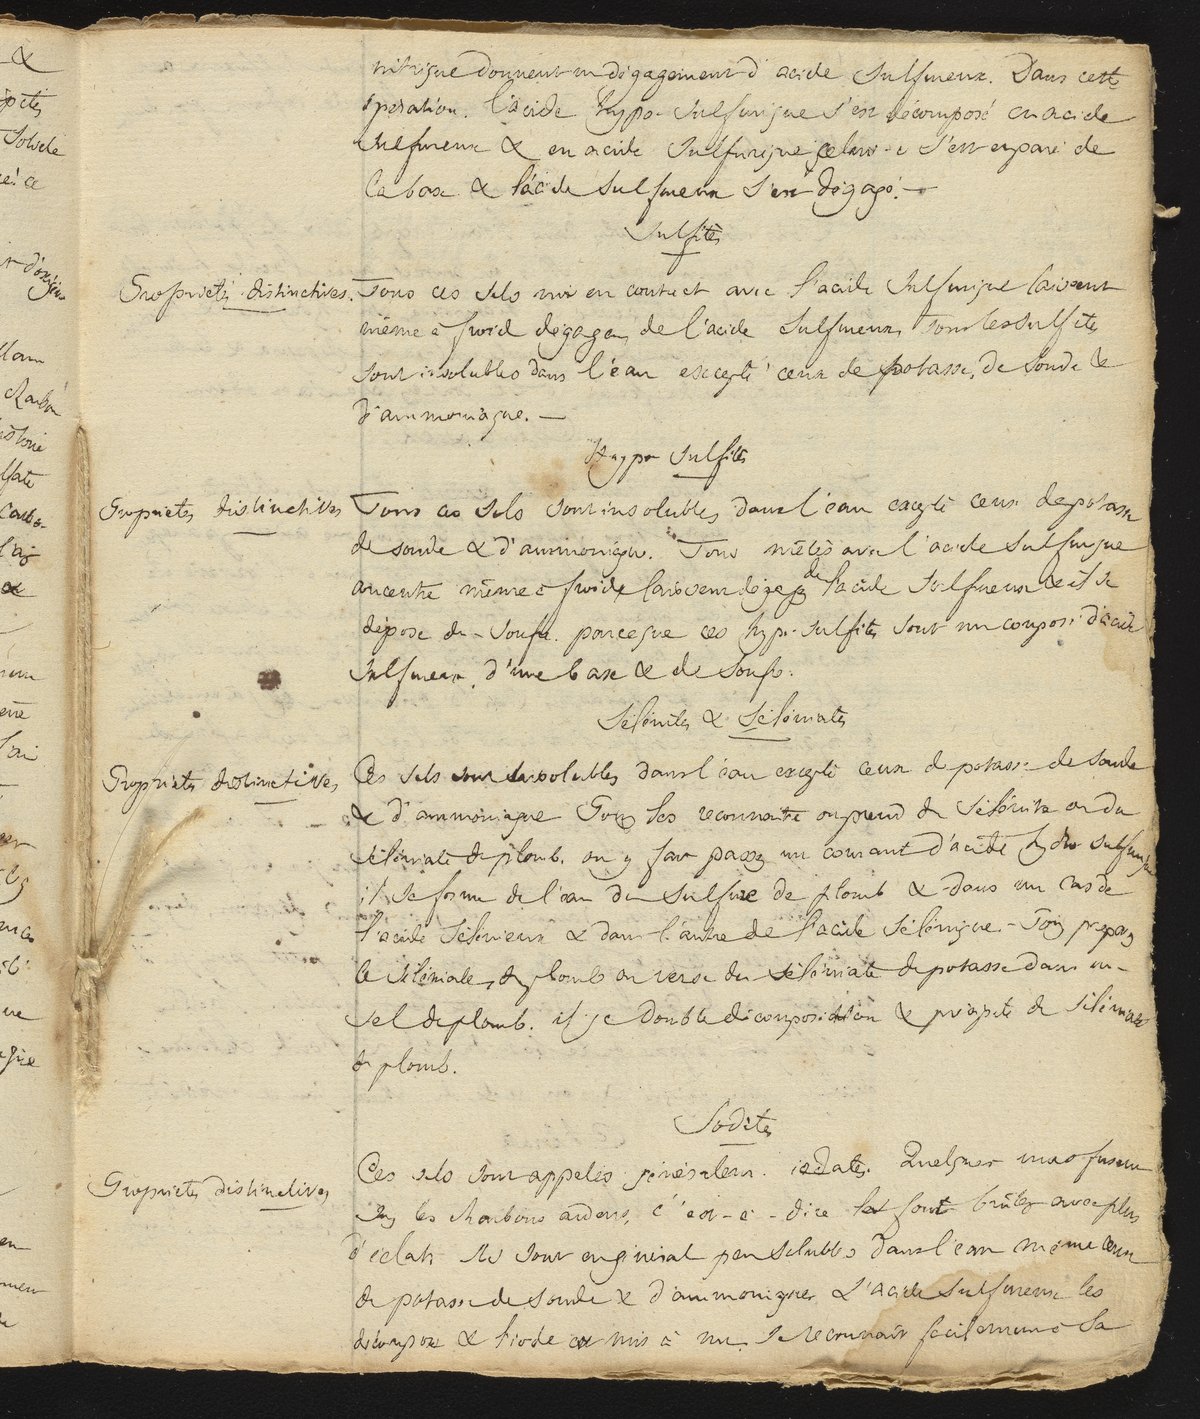 &
Solide
nitrique donnent un dégagement d'acide Sulfureux. Dans cette
opération. l'acide hypo-Sulfurique s'est décomposé en acide
Sulfureux & en acide Sulfurique celui-ci s'est emparé de
la base & l'acide Sulfureux s'est dégagé. —
Sulfites
Proprietés distinctives. Tous ces Sels mis en contact avec l'acide Sulfurique laissent
même à froid dégager de l'acide Sulfureux, Tous les Sulfites
sont insolubles dans l'eau excepté ceux de potasse, de Soude &
d'ammoniaque. —
Hypo Sulfites
Proprietés distinctives Tous ces Sels sont insolubles dans l'eau excepté ceux de potasse
de soude & d'ammoniaque. Tous mêlés avec l'acide Sulfurique
même à froid, laissent dégager de l'acide Sulfureux & il se
dépose du Soufre. parceque ces hypo-Sulfites sont un composé d'acide
Sulfureux, d'une base & de Soufre.
Sélénites & Séléniates
Proprietés distinctives Ces sels sont insolubles dans l'eau excepté ceux de potasse de soude
& d'ammoniaque Pour les reconnaître on prend du Sélénite ou du
séléniate de plomb. on y fait passer un courant d'acide hydro sulfurique
il se forme de l'eau du sulfure de plomb & dans un cas de
l'acide Sélénieux & dans l'autre de l'acide Sélénique. Pour préparer
le Séléniate de plomb on verse du séléniate de potasse dans un
Sel de plomb. il y a double décomposition & précipité de Séléniate
de plomb.
Iodites
Proprietés distinctives Ces sels sont appelés généralem. iodates. Quelques uns fusent
sur les charbons ardens, c'est-à-dire les font brûler avec plus
d'éclat. Ils sont en général peu solubles dans l'eau même ceux
de potasse de soude & d'ammoniaque L'acide sulfureux les
décompose & l'iode est mis à nu, se reconnait facilement à sa